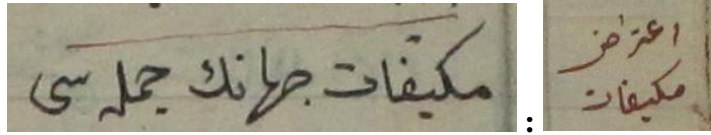 مكیفات جهانك جمله سی
:
اعتراض
مكیفات